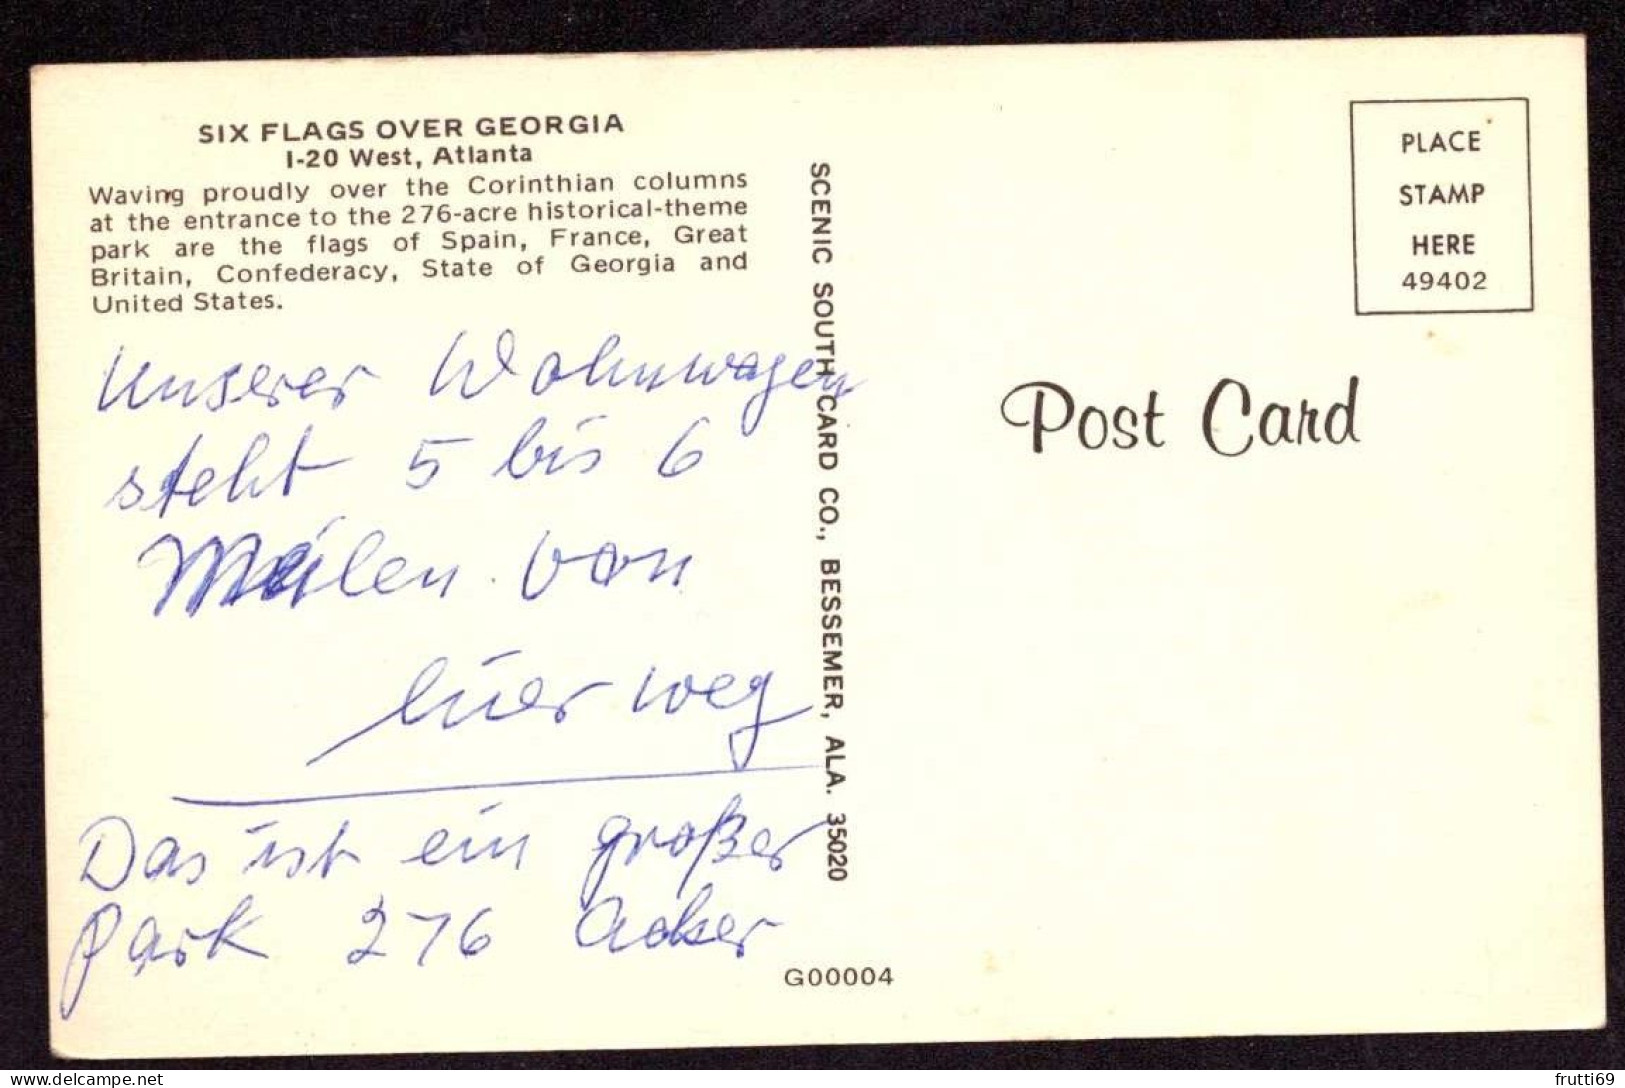 SIX FLAGS OVER GEORGIA
I-20 West, Atlanta
Waving proudly over the Corinthian columns
at the entrance to the 276-acre historical-theme
park are the flags of Spain, France, Great
Britain, Confederacy, State of Georgia and
United States.
Unserer Wohnwagen
steht 5 bis 6
Meilen von
hier weg
Das ist ein großer
Park 276 Acker
SCENIC SOUTH CARD CO., BESSEMER, ALA. 35020
G00004
PLACE
STAMP
HERE
49402
Post Card
delcampe.net
frutti69